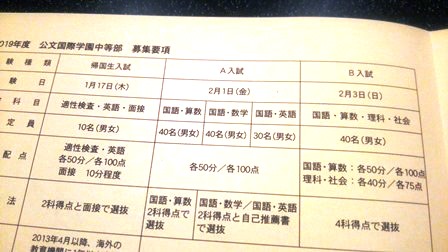 2019年度 公文国際学園中等部 募集要項
験種類 帰国生入試 A入試 B入試
験日 1月17日(木) 2月1日(金) 2月3日(日)
科目 適性検査・英語・面接 国語・算数 国語・数学 国語・英語 国語・算数・理科・社会
定員 10名(男女) 40名(男女) 40名(男女) 30名(男女) 40名(男女)
配点 適性検査・英語 各50分/各100点 面接 10分程度 各50分/各100点 国語・算数:各50分/各100点 理科・社会:各40分/各75点
法 2科得点と面接で選抜 国語・算数 2科得点で選抜 国語・数学/国語・英語 2科得点と自己推薦書で選抜 4科得点で選抜
2013年4月以降、海外の